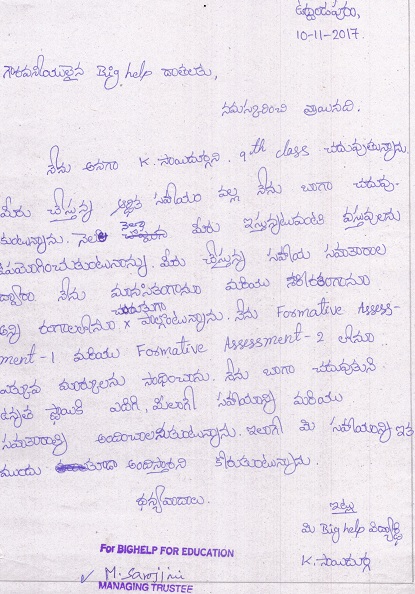 ఉద్దండపురం,
10-11-2017.
గౌరవనీయులైన Big help దాతలకు,
నమస్కరించి వ్రాయునది.
నేను అనగా K. సాయిదుర్గని. 9th class చదువుతున్నాను.
మీరు చేస్తున్న ఆర్థిక సహాయం వల్ల నేను బాగా చదువు-
కుంటున్నాను. మీరు ఇస్తున్నటువంటి వస్తువులను
ఉపయోగించుకుంటున్నాను. మీరు చేస్తున్న సహాయ సహకారాల
ద్వారా నేను మానసికంగాను మరియు
అన్ని రంగాలలోను చురుకుగా పాల్గొంటున్నాను. నేను Formative Assess-
ment - 1 మరియు Formative Assessment - 2 లోను
ఎక్కువ మార్కులను సాధించాను. నేను బాగా చదువుకుని
ఉన్నత స్థాయికి ఎదిగి, మీలాగే సహాయాన్ని మరియు
సహకారాన్ని అందించాలనుకుంటున్నాను. ఇలాగే మీ సహాయాన్ని ఇక
ముందు కూడా అందిస్తారని కోరుకుంటున్నాను.
ధన్యవాదాలు.
ఇట్లు
మీ Big help విద్యార్థి
K. సాయిదుర్గ
For BIGHELP FOR EDUCATION
M. Sarojini
MANAGING TRUSTEE